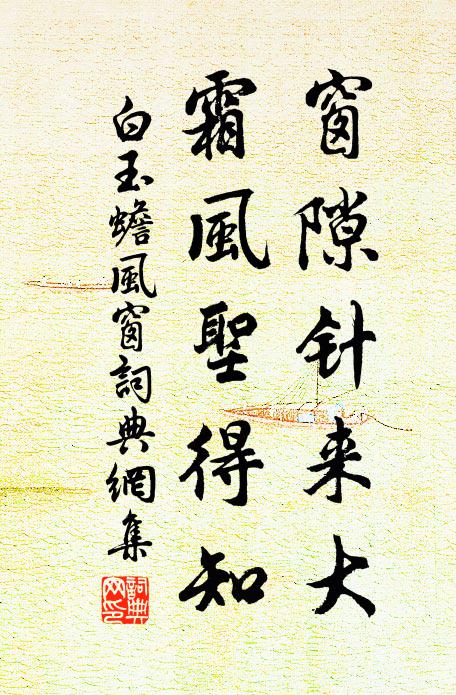 窗隙针来大
霜風聖得知
白玉蟾風窗詞典網集
詞典
网印